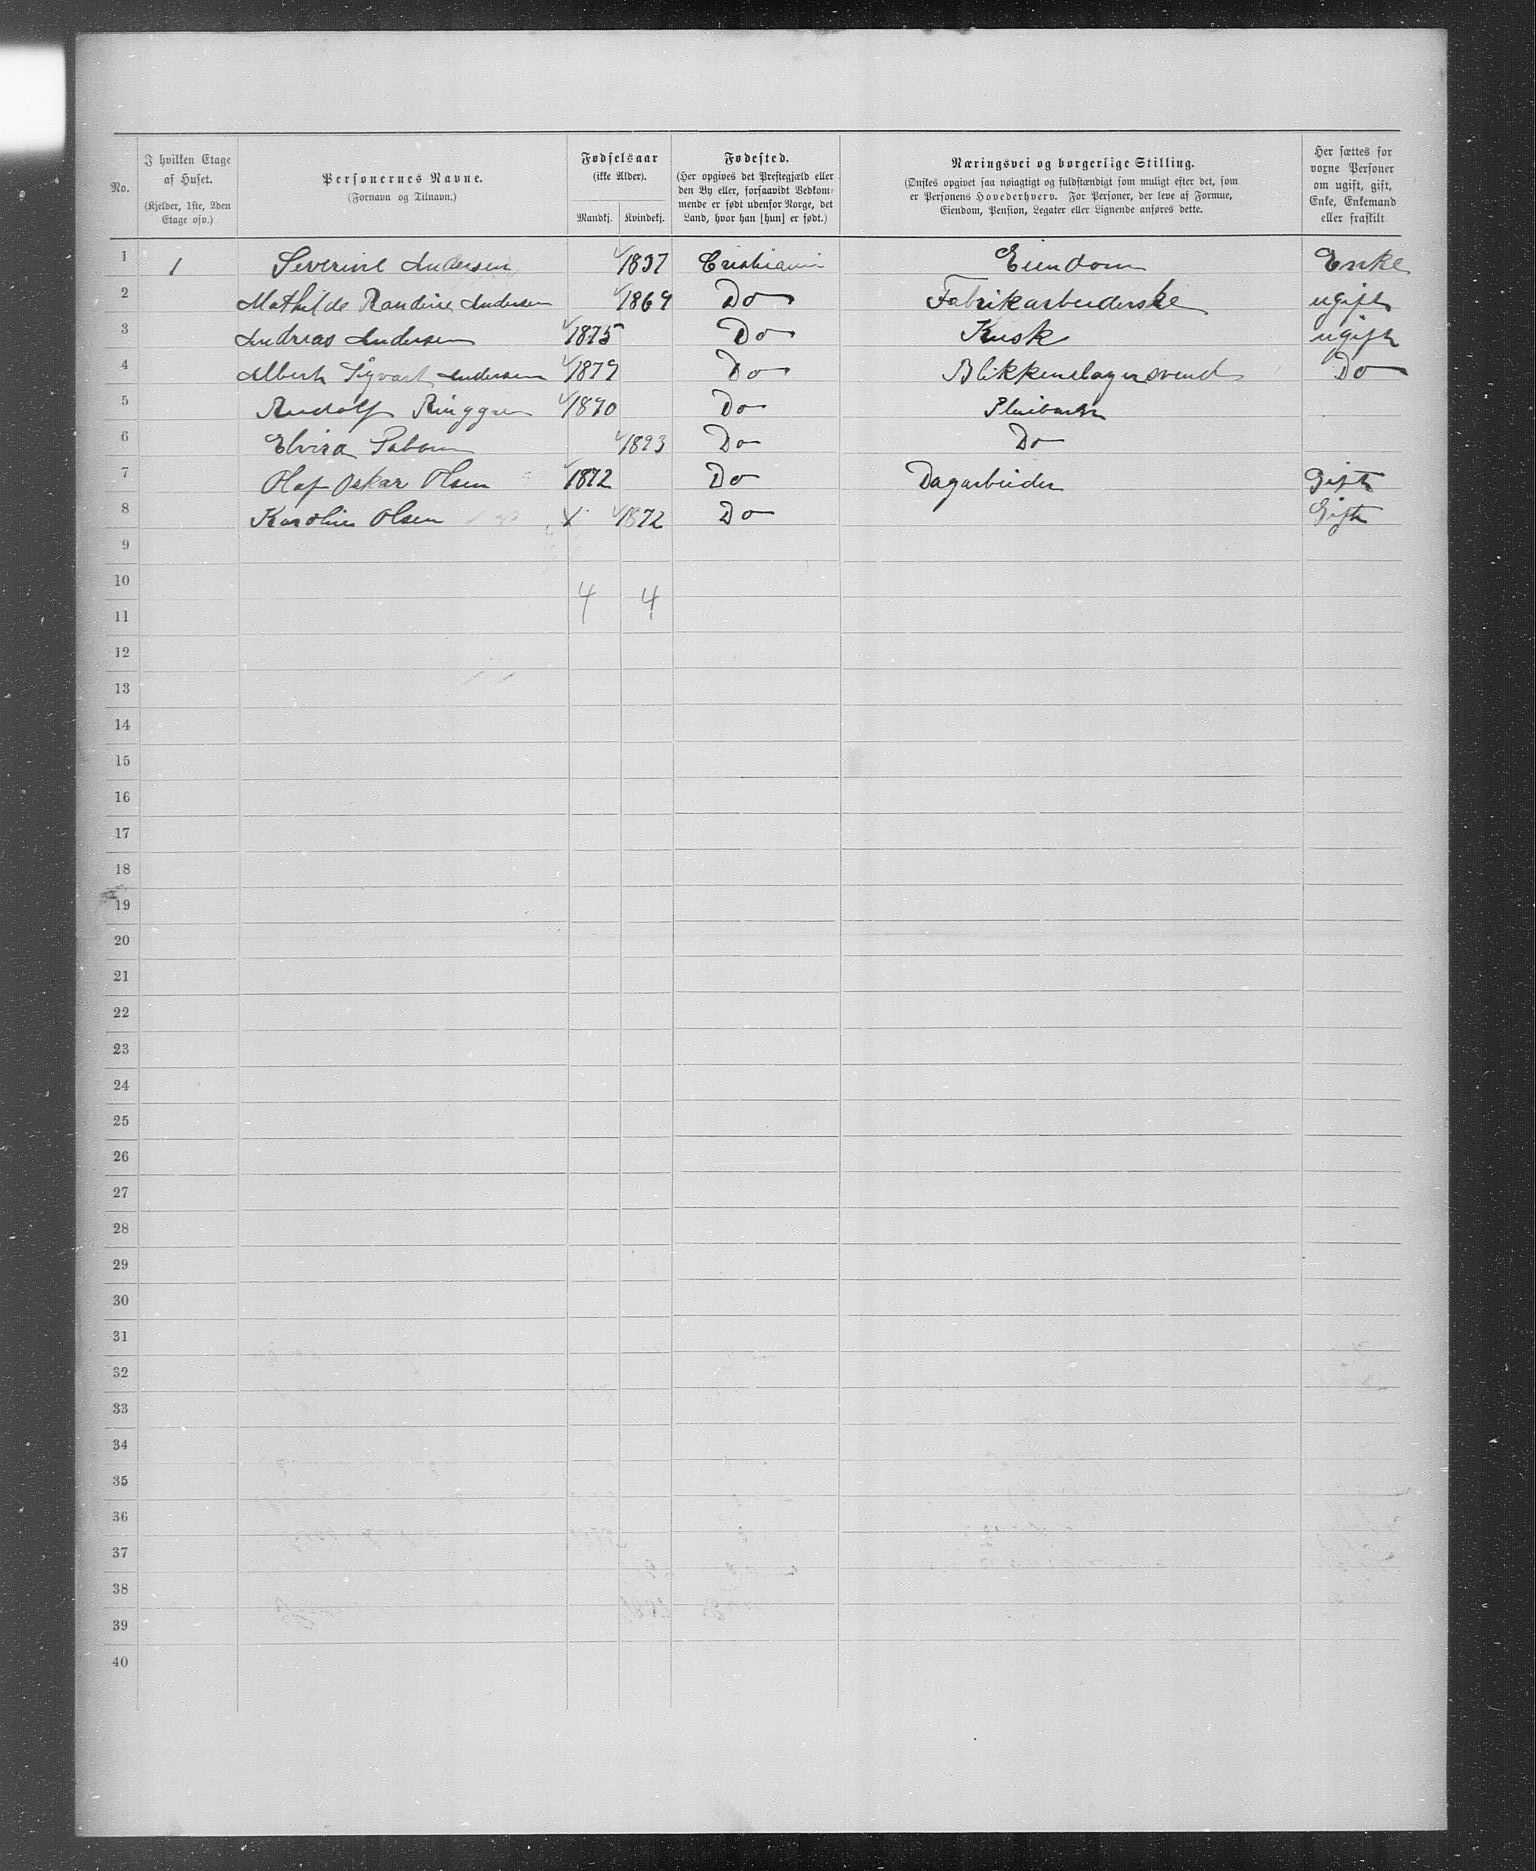 No.
I hvilken Etage
af Huset.
(Kjelder, 1ste, 2den
Etage osv.)
Personernes Navne.
(Fornavn og Tilnavn.)
Fødselsaar
(ikke Alder).
Mandkj. Kvindekj.
Fødested.
(Her opgives det Prestegjæld eller
den By eller, forsaavidt Vedkom-
mende er født udenfor Norge, det
Land, hvor han [hun] er født.)
Næringsvei og borgerlige Stilling.
(Ønskes opgivet saa nøiagtigt og fuldstændigt som muligt efter det, som
er Personens Hovederhverv. For Personer, der leve af Formue,
Eiendom, Pension, Legater eller Lignende anføres dette.
Her sættes for
voxne Personer
om ugift, gift,
Enke, Enkemand
eller fraskilt
1 1 Severine Andersen 1837 Cristiania Eiendom Enke
2 Mathilde Randine Andersen 1869 Do Fabrikarbeiderske ugift
3 Andreas Andersen 1875 Do Kusk ugift
4 Albert Sigvart Andersen 1879 Do Blikkenslagersvend Do
5 Rudolf Ringgren 1890 Do Pleibarn
6 Elvira 1893 Do Do
7 Olaf Oskar Olsen 1872 Do Dagarbeider Gift
8 Karoline Olsen x 1872 Do Gift
9
10
4 4
11
12
13
14
15
16
17
18
19
20
21
22
23
24
25
26
27
28
29
30
31
32
33
34
35
36
37
38
39
40